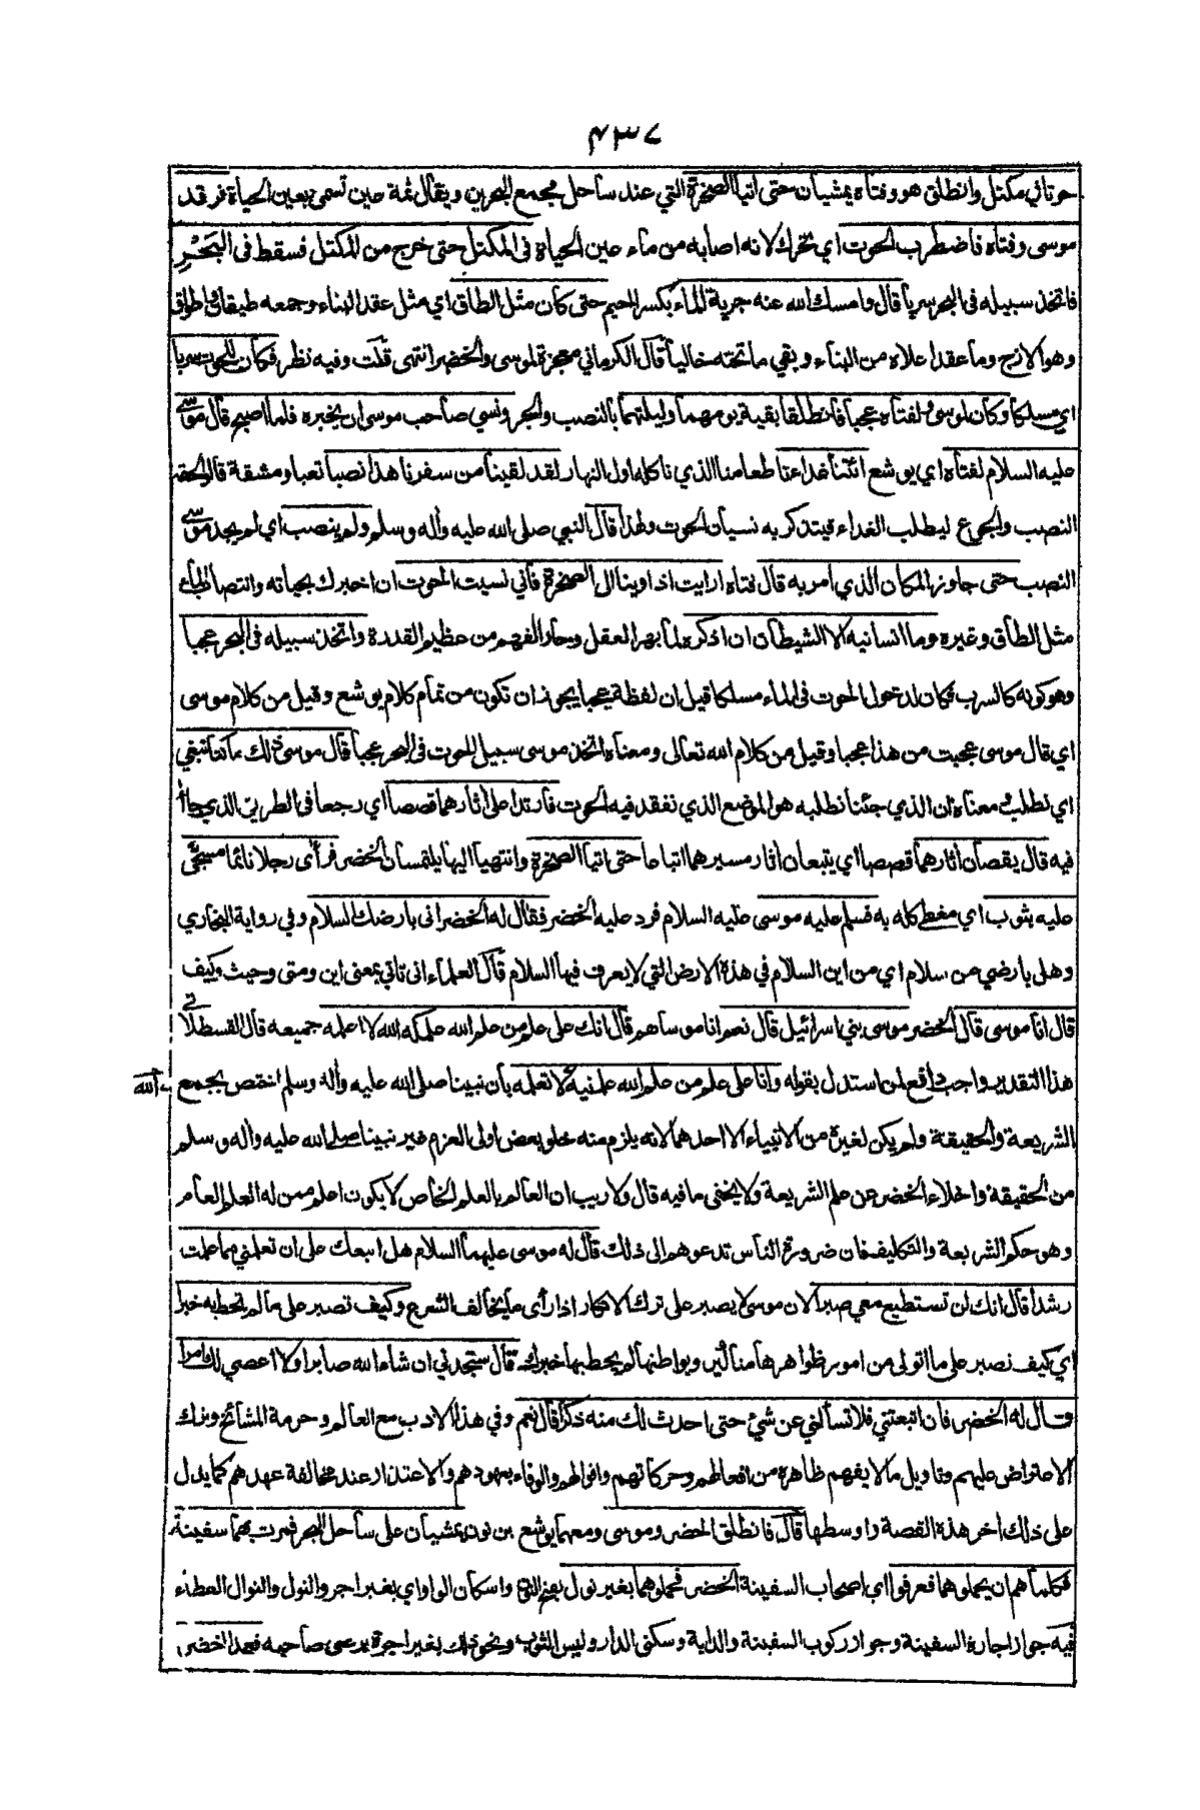 ٤٣٧
حوتا في مكتل وانطلق هو وفتاه يمشيان حتى اتيا الصخرة التي عند ساحل مجمع البحرين ويقال ثمة عين تسمى بعين الحياة فرقد
موسى وفتاه فاضطرب الحوت اي تحرك لانه اصابه من ماء عين الحياة في المكتل حتى خرج من المكتل فسقط في البَحْرِ
فاتخذ سبيله في البحر سربا قال وامسك الله عنه جرية الماء بكسر الجيم حتى كان مثل الطاق اي مثل عقد البناء وجمعه طيقان واطواق
وهو الازج وما عقد اعلاه من البناء وبقي ما تحته خاليا قال الكرماني معجزة لموسى والخضر انتهى قلت وفيه نظر فكان للحوت سربا
اي مسلكا وكان لموسى ولفتاه عجبا فانطلقا بقية يومهما وليلتهما بالنصب والجر ونسي صاحب موسى ان يخبره فلما اصبح قال موسى
عليه السلام لفتاه اي يوشع ائتنا غداءنا طعامنا الذي ناكله اول النهار لقد لقينا من سفرنا هذا نصبا تعبا ومشقة قالو الحقه
النصب والجوع ليطلب الغداء فيتذكر به نسيان الحوت ولهذا قال النبي صلى الله عليه وآله وسلم ولم ينصب اي لم يجد موسى
النصب حتى جاوز المكان الذي امر به قال فتاه ارايت اذ اوينا الى الصخرة فاني نسيت الحوت ان اخبرك بحياته وانتصاب الماء
مثل الطاق وغيره وما انسانيه الا الشيطان ان اذكره لما بهر العقل وحار الفهم من عظيم القدرة واتخذ سبيله في البحر عجبا
وهو كونه كالسرب فكان لدخول الحوت في الماء مسلكا قيل ان لفظة عجبا يجوز ان تكون من تمام كلام يوشع وقيل من كلام موسى
اي قال موسى عجبت من هذا عجبا وقيل من كلام الله تعالى ومعناه اتخذ موسى سبيل الحوت في البحر عجبا قال موسى ذلك ما كنا نبغي
اي نطلب معناه ان الذي جئنا نطلبه هو الموضع الذي نفقد فيه الحوت فارتدا على آثارهما قصصا اي رجعا في الطريق الذي جاآ
فيه قال يقصان آثارهما قصصا اي يتبعان آثار مسيرهما اتباعا حتى اتيا الصخرة وانتهيا اليها يلتمسان الخضر فرأى رجلا نائما مسجى
عليه بثوب اي مغطى كله به فسلم عليه موسى عليه السلام فرد عليه الخضر فقال له الخضر انى بارضك السلام وفي رواية البخاري
وهل بارضي من سلام اي من اين السلام في هذه الارض التي لا يعرف فيها السلام قال العلماء انى تاتي بمعنى اين ومتى وحيث وكيف
قال انا موسى قال الخضر موسى بني اسرائيل قال نعم انا موساهم قال انك على علم من علم الله علمكه الله لا اعلمه جميعه قال القسطلاني
هذا التقدير واجب دافع لمن استدل بقوله وانا على علم من علم الله علمنيه لا تعلمه بان نبينا صلى الله عليه وآله وسلم اختص بجمع
الله
الشريعة والحقيقة ولم يكن لغيره من الانبياء الا احدهما لانه يلزم منه خلو بعض اولى العزم غير نبينا صلى الله عليه وآله وسلم
من الحقيقة واخلاء الخضر عن علم الشريعة ولا يخفى ما فيه قال ولا ريب ان العالم بالعلم الخاص لا يكون اعلم ممن له العلم العام
وهو حكم الشريعة والتكليف فان ضرورة الناس تدعوهم الى ذلك قال له موسى عليهما السلام هل اتبعك على ان تعلمني مما علمت
رشدا قال انك لن تستطيع معي صبرا لان موسى لا يصبر على ترك الانكار اذا رأى ما يخالف الشرع وكيف تصبر على ما لم تحط به خبرا
اي كيف تصبر على ما اتولى من امور ظواهرها مناكير وبواطنها لم يحط بها خبرك قال ستجدني ان شاء الله صابرا ولا اعصي لك امرا
وقال له الخضر فان اتبعتني فلا تسألني عن شيء حتى احدث لك منه ذكرا قال نعم وفي هذا الادب مع العالم وحرمة المشائخ وترك
الاعتراض عليهم وتاويل ما لا يفهم ظاهره من افعالهم وحركاتهم واقوالهم والوفاء بعهودهم والاعتذار عند مخالفة عهدهم كما يدل
على ذلك آخر هذه القصة واوسطها قال فانطلق الخضر وموسى ومعهما يوشع بن نون يمشيان على ساحل البحر فمرت بهما سفينة
فكلماهم ان يحملوهما فعرفوا اي اصحاب السفينة الخضر فحملوهما بغير نول بفتح النون واسكان الواو اي بغير اجر والنول والنوال العطاء
فيه جواز اجارة السفينة وجواز ركوب السفينة والدابة وسكنى الدار ولبس الثوب ونحو ذلك بغير اجرة برضى صاحبه فعمد الخضر